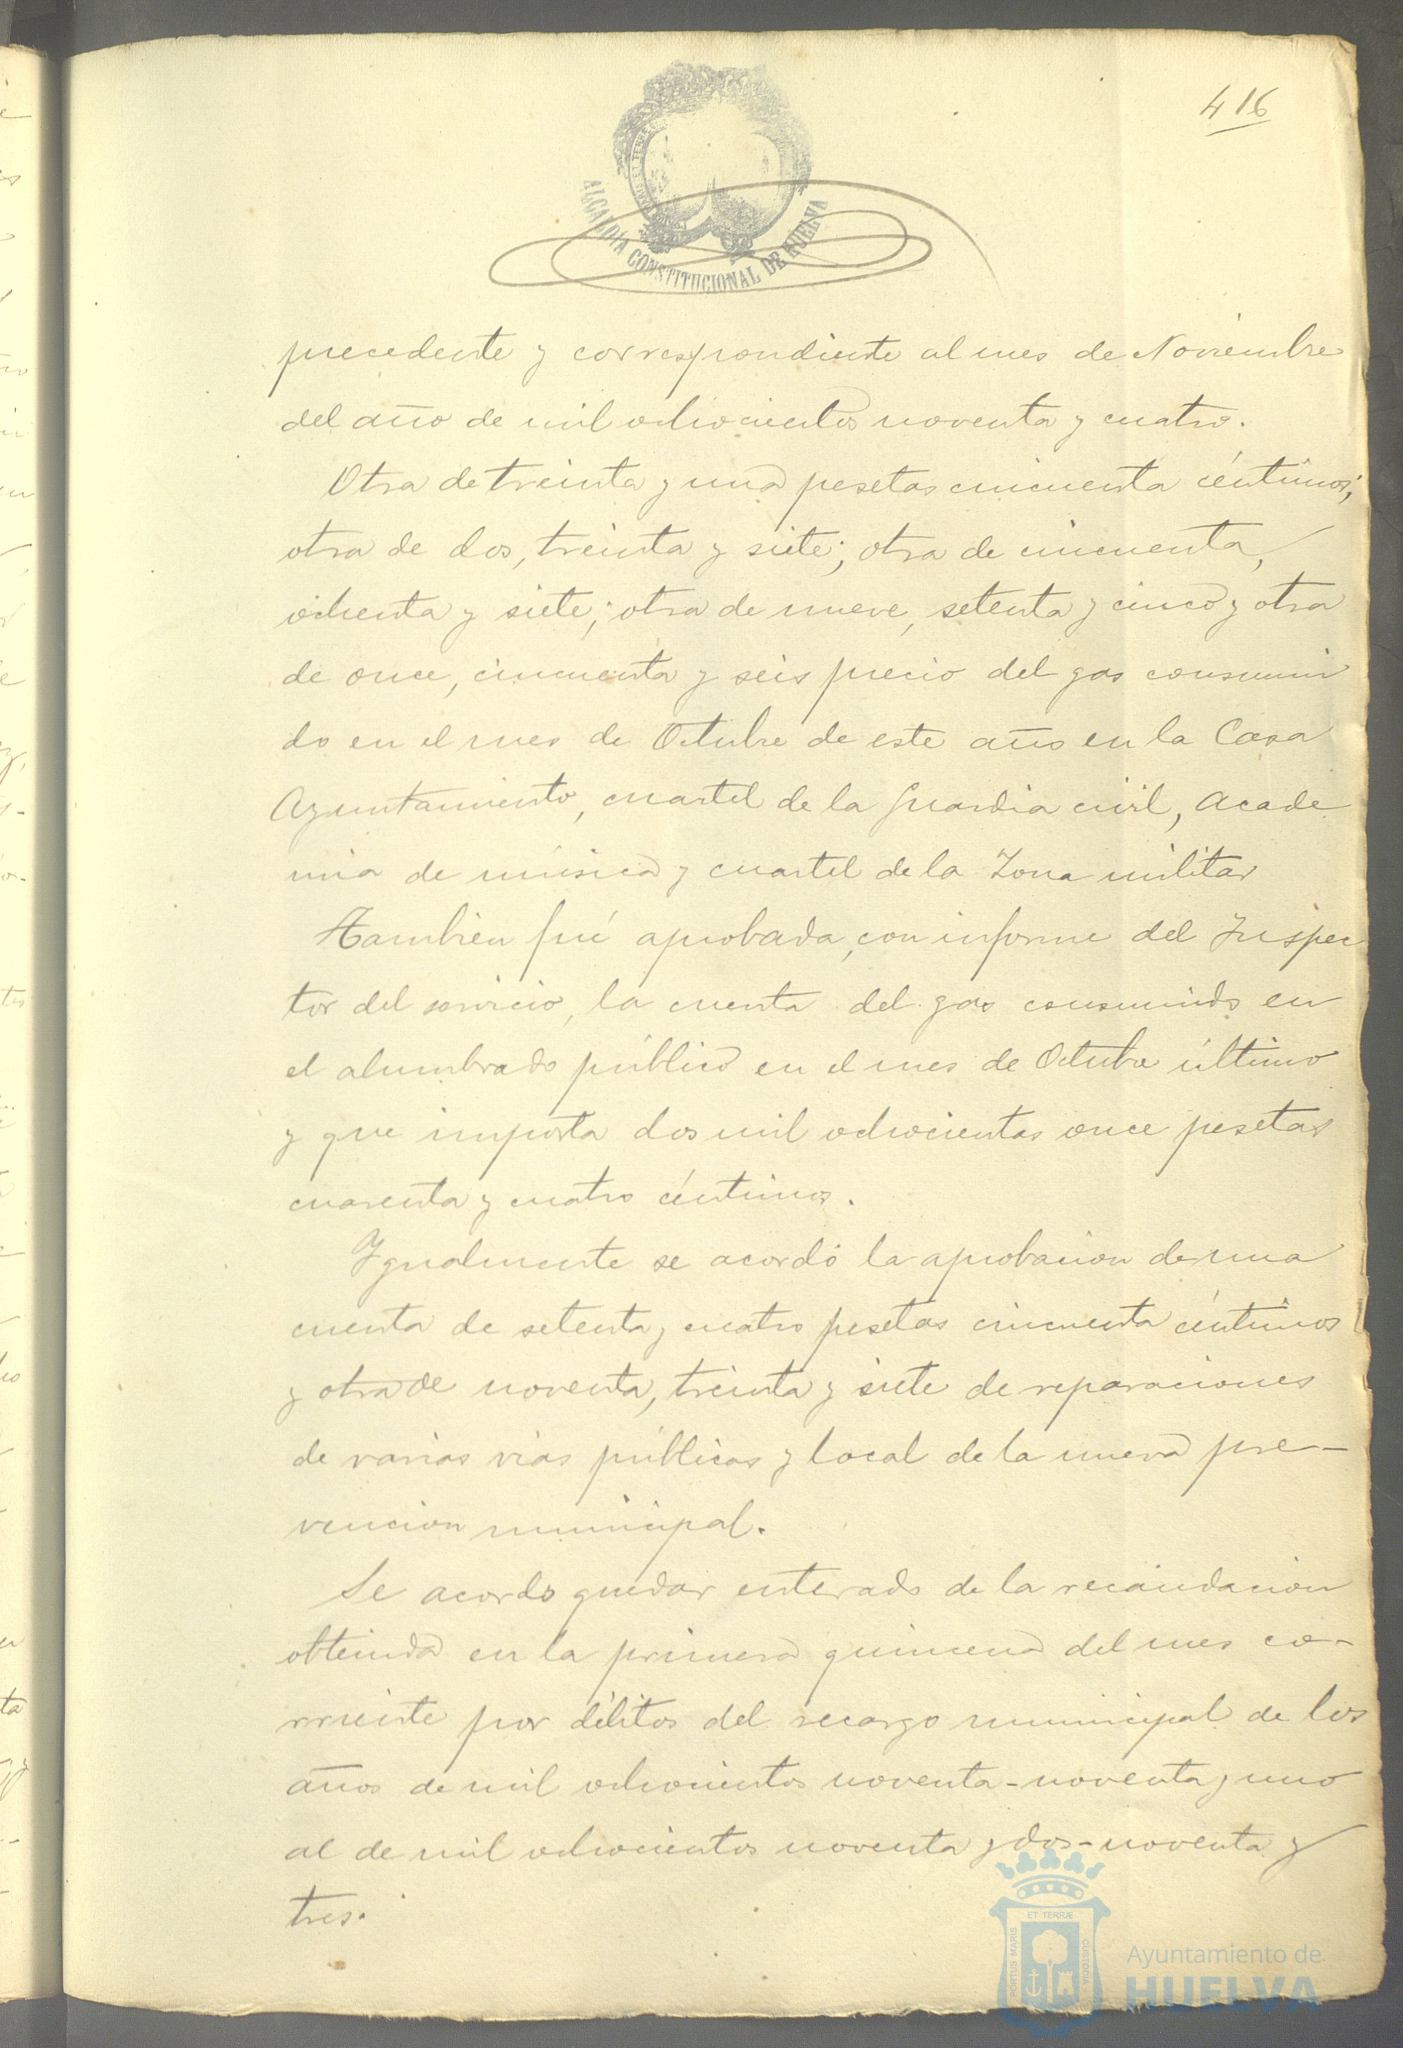 416
ALCALDÍA CONSTITUCIONAL DE HUELVA
precedente y correspondiente al mes de Noviembre
del año de mil ochocientos noventa y cuatro.
Otra de treinta y una pesetas cincuenta céntimos;
otra de dos, treinta y siete; otra de cincuenta,
ochenta y siete; otra de nueve, setenta y cinco y otra
de once, cincuenta y seis precio del gas consumi
do en el mes de Octubre de este año en la Casa
Ayuntamiento, cuartel de la Guardia civil, Acade
mia de música y cuartel de la Zona militar
Tambien fué aprobada, con informe del Inspec
tor del servicio, la cuenta del gas consumido en
el alumbrado público en el mes de Octubre último
y que importa dos mil ochocientas once pesetas
cuarenta y cuatro céntimos.
Igualmente se acordó la aprobacion de una
cuenta de setenta y cuatro pesetas cincuenta céntimos
y otra de noventa, treinta y siete de reparaciones
de varias vias públicas y local de la nueva pre-
vencion municipal.
Se acordo quedar enterado de la recaudacion
obtenida en la primera quincena del mes co-
rriente por débitos del recargo municipal de los
años de mil ochocientos noventa-noventa y uno
al de mil ochocientos noventa y dos-noventa y
tres.
PORTUS MARIS
ET TERRÆ
CUSTODIA
Ayuntamiento de
HUELVA